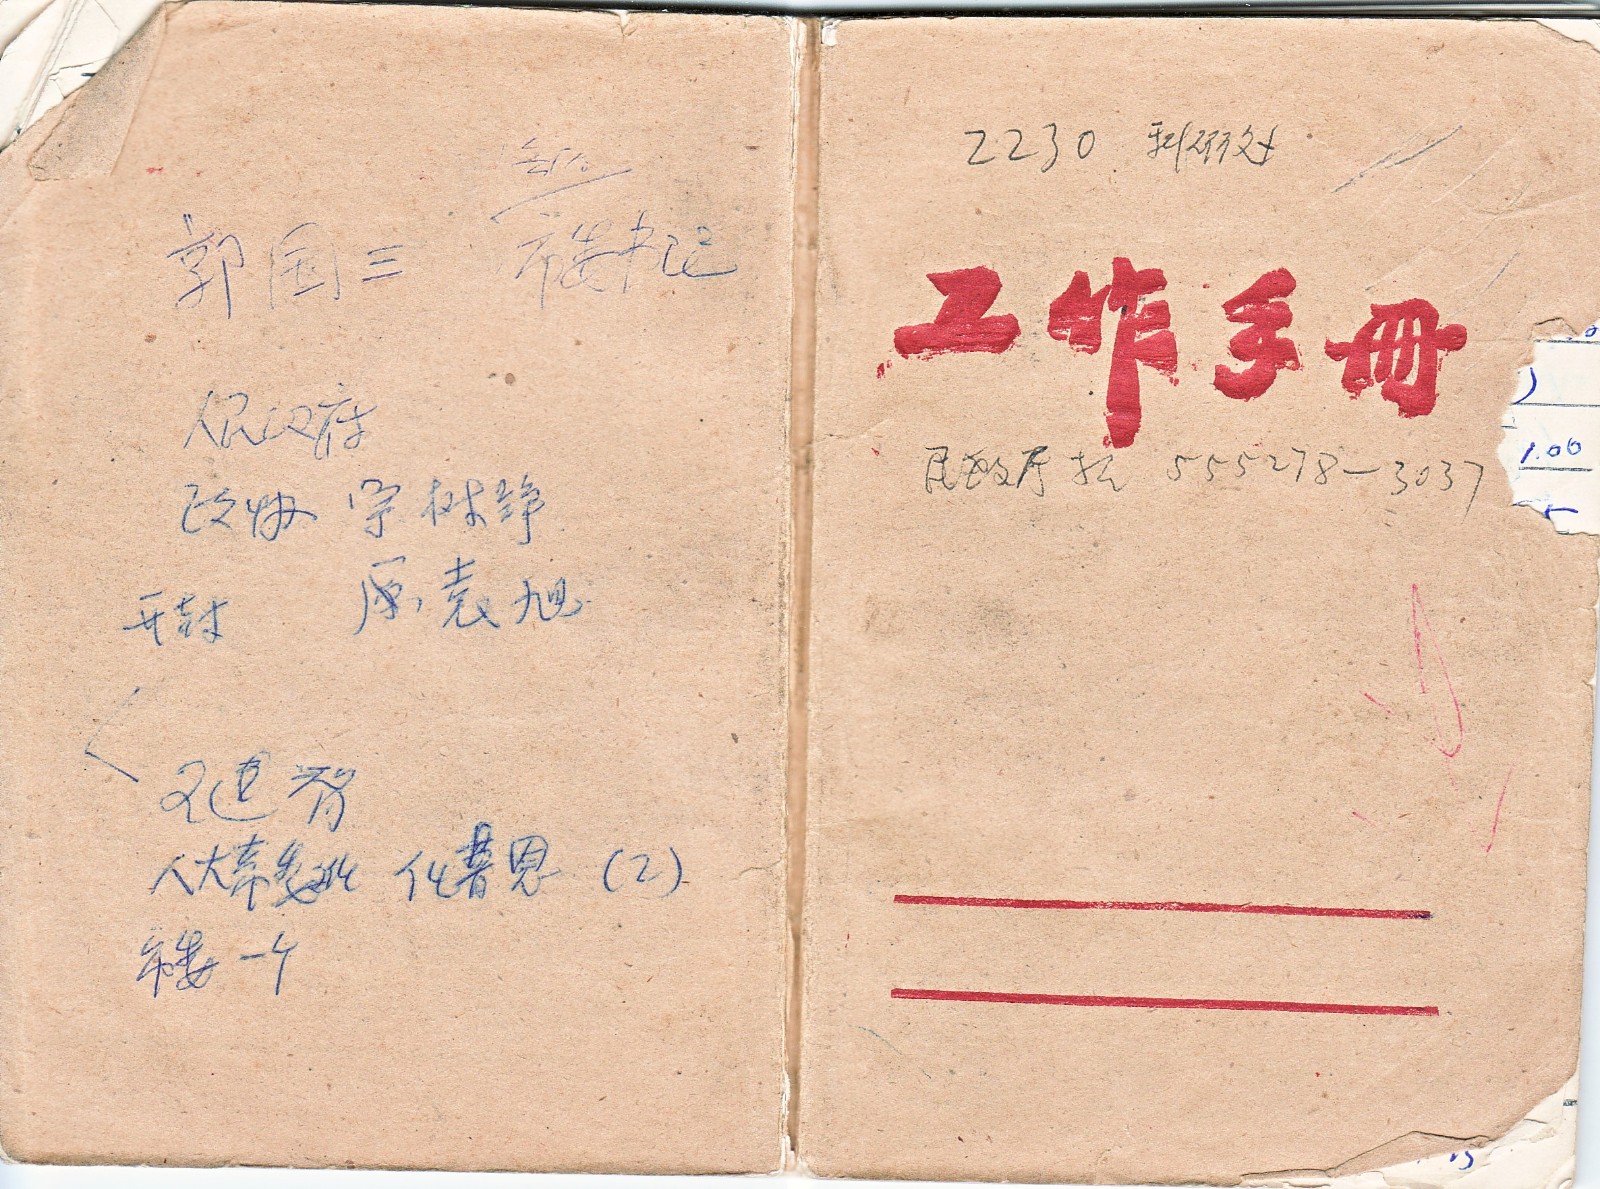 郭国三 市委书记
人民政府
政协 宗树铮
开封 原袁旭
王建智
人大常委 化普恩 (2)
市委一个
2230 科研处
工作手册
民政厅 拉 555278-3037
1.00